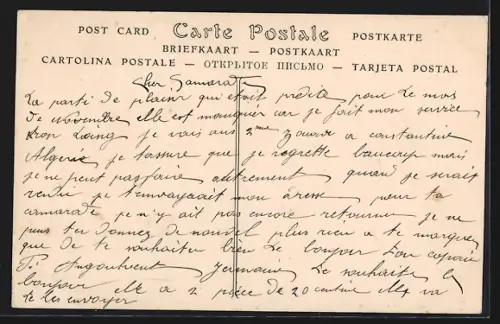 POST CARD Carte Postale POSTKARTE
BRIEFKAART — POSTKAART
CARTOLINA POSTALE — ОТКРЫТОЕ ПИСЬМО — TARJETA POSTAL
Cher Camarade
La parti de plaisir qui étoit predite pour le mos
de novembre elle est manquer car je fait mon service
je vais au 2me Zouave a constantine
Algerie je tassure que je regrette beaucoup mais
je ne peut pas faire autrement quand je serais
rendu je t'envoyairait mon adresse pour ta
camarade je n'y ait pas encore retourner je ne
peus ten donnez de nouvel plus rien a te marquer
que de te souhaiter bien le bonjour Ton copain
Germaine te souhaite le
bonjour elle a 2 pièce de 20 centime elle va
te les envoyer